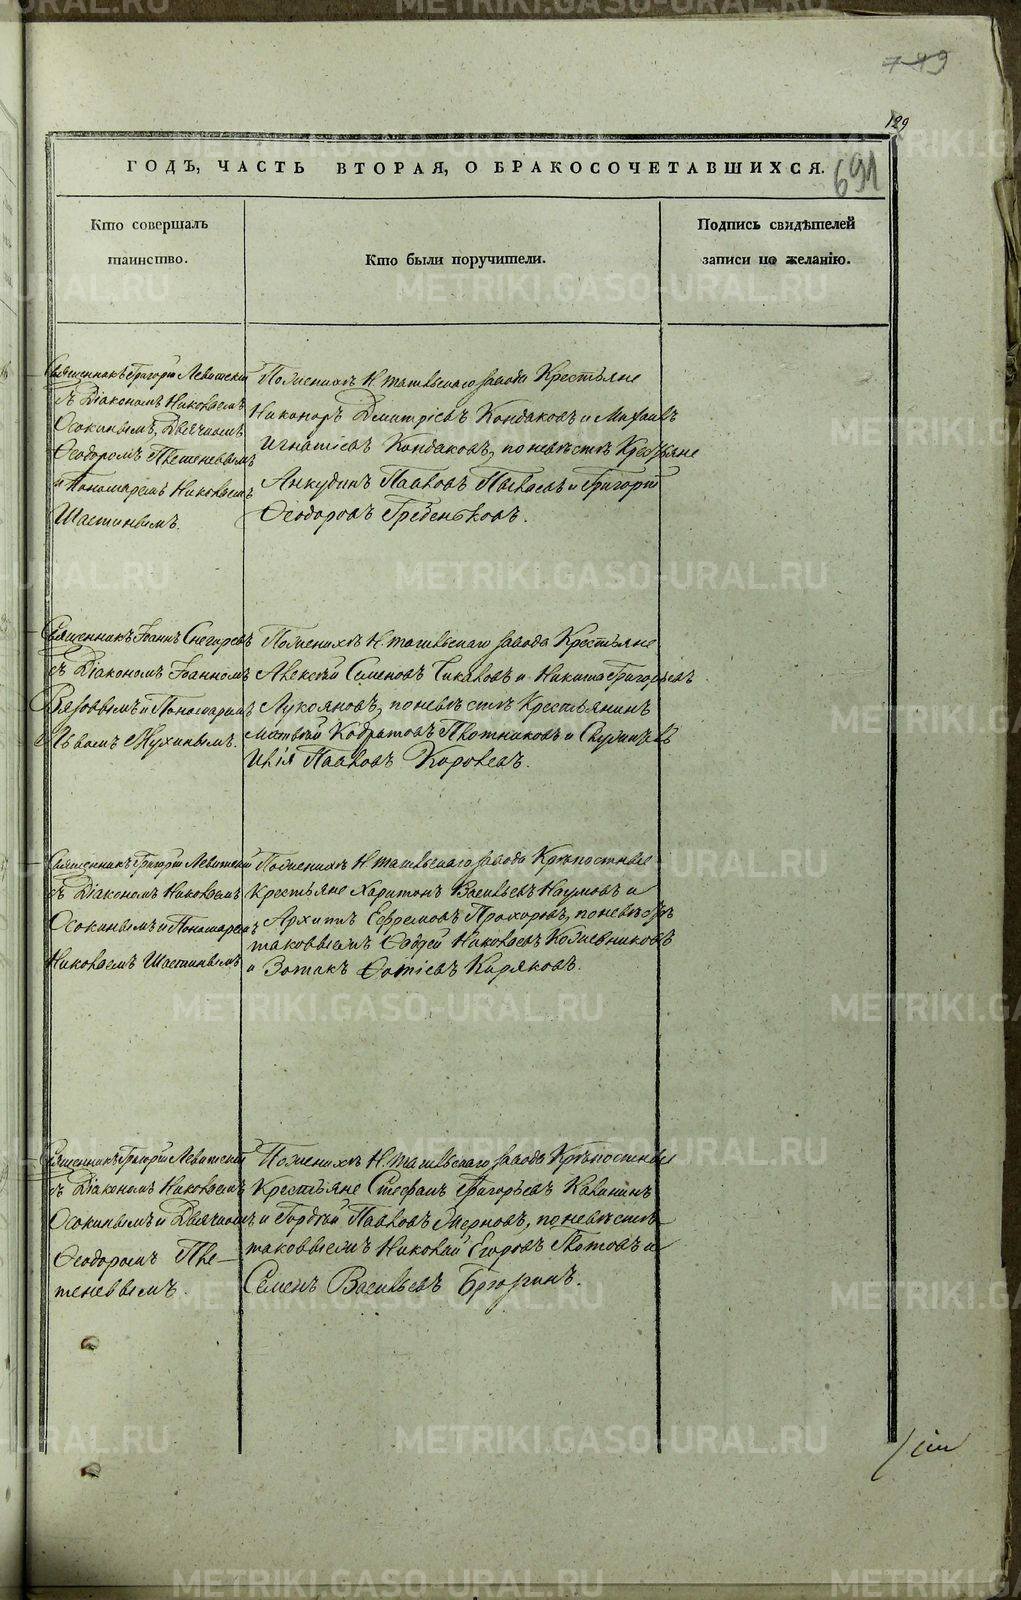 789
129
ГОДЪ, ЧАСТЬ ВТОРАЯ, О БРАКОСОЧЕТАВШИХСЯ.
691
Кто совершалъ
таинство.
Кто были поручители.
Подпись свидѣтелей
записи по желанію.
Священникъ Григорій Левитскій
съ Діакономъ Николаемъ
Осокинымъ, Дьячкомъ
Ѳеодоромъ Плетеневымъ
и Пономаремъ Николаемъ
Шастинымъ.
По женихѣ Н. тагильскаго завода Крестьяне
Никоноръ Дмитріевъ Кондаковъ и Михаилъ
Игнатіевъ Кондаковъ, по невѣстѣ Крестьяне
Анкудинъ Павловъ и Григорій
Ѳеодоровъ Гребеньковъ.
Священникъ Іоаннъ Снегиревъ
съ Діакономъ Іоанномъ
и Пономаремъ
Львомъ Мухинымъ.
По женихѣ Н. тагильскаго завода Крестьяне
Алексѣй Семеновъ Чикаловъ и Никита Григорьевъ
Лукояновъ, по невѣстѣ Крестьянинъ
Матвѣй Кодратовъ Плотниковъ и
Илія Павловъ Королевъ.
Священникъ Григорій Левитскій
съ Діакономъ Николаемъ
Осокинымъ и Пономаремъ
Николаемъ Шастинымъ
По женихѣ Н. тагильскаго завода Крѣпостные
Крестьяне Харитонъ Васильевъ Наумовъ и
Архипъ Ефремовъ Прохоровъ, по невѣстѣ
таковымъ Фадѣй Николаевъ Кожевниковъ
и Зотикъ Ѳотіевъ Киряковъ.
Священникъ Григорій Левитскій
съ Діакономъ Николаемъ
Осокинымъ и Дьячкомъ
Ѳеодоромъ Пле-
теневымъ.
По женихѣ Н. тагильскаго завода Крѣпостные
Крестьяне Стефанъ Григорьевъ Калининъ
и Гордѣй Павловъ Черновъ, по невѣстѣ
таковымъ Николай Егоровъ Глотовъ и
Семенъ Васильевъ Брюзгинъ.
METRIKI.GASO-URAL.RU